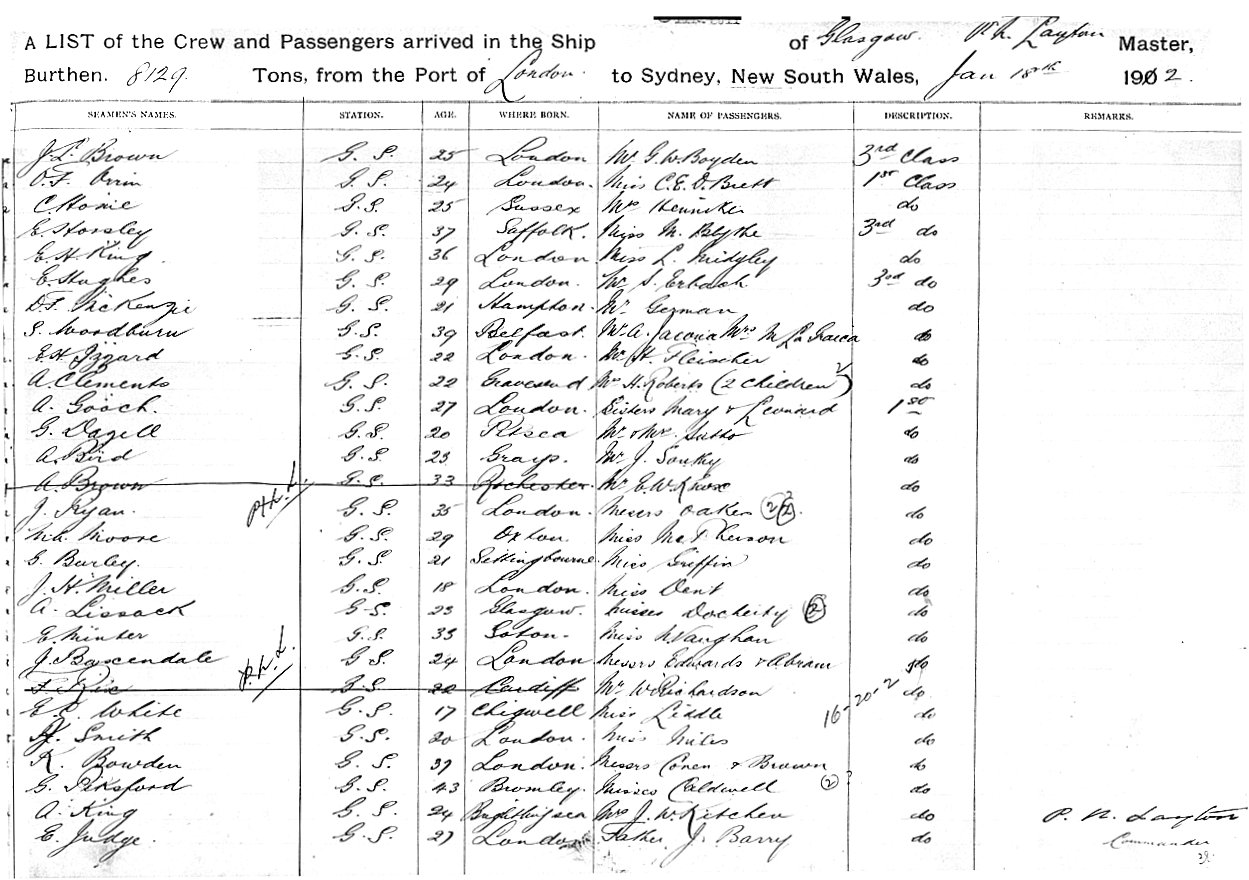 A LIST of the Crew and Passengers arrived in the Ship of Glasgow. P. N. Layton Master,
Burthen. 8129. Tons, from the Port of London. to Sydney, New South Wales, Jan 18th 1902.
SEAMEN'S NAMES. STATION. AGE. WHERE BORN. NAME OF PASSENGERS. DESCRIPTION. REMARKS.
J. L. Brown G. S. 25 London Mr G. W. Boyden 3rd Class
O. F. Orrin G. S. 24 London. Miss C. E. D. Brett 1st Class
C. Homie G. S. 25 Sussex Mrs Henniker do
E. Horsley G. S. 37 Suffolk. Miss M. Blythe 3rd do
E. H. King. G. S. 36 London Miss L. Midgley do
E. Hughes G. S. 29 London. Mr S. Erbach 3rd do
D. F. McKenzie G. S. 21 Hampton. Mr German do
S. Woodburn G. S. 39 Belfast. Mr A. Jacona Mrs M La do
E. H. Izzard G. S. 22 London. Mr H. Fleischer do
A. Clements G. S. 22 Gravesend Mrs H. Roberts (2 children) 2 do
A. Gooch. G. S. 27 London. Sisters Mary & Leonard 1st
G. Dazell G. S. 20 Pitsea Mr & Mrs do
A. Bird G. S. 23 Grays. Mr J. do
A. Brown G. S. 33 Rochester. Mr E. W. Knox do
P.N.L.
J. Ryan. G. S. 35 London. Messrs Oakes (2) 2 do
Moore G. S. 29 Oxton. Miss McPherson do
G. Burley. G. S. 21 Sittingbourne Miss Griffin do
J. H. Miller G. S. 18 London. Miss Dent do
A. Lissack G. S. 23 Glasgow. Misses Docherty (2) do
E. Minter G. S. 33 Soton. Miss N. Vaughan do
J. Baxendale G. S. 24 London Messrs Edwards & Abram do
P.N.L.
F. Rix G. S. 22 Cardiff Mr W. Richardson do
16-20-2
E. C. White G. S. 17 Chigwell Miss Liddle do
H. Smith G. S. 20 London. Miss Miles do
K. Bowden G. S. 37 London. Messrs Cohen & Brown do
G. Piksford G. S. 43 Bromley. Misses Caldwell (2) do
A. King G. S. 24 Brightlingsea Mrs J. W. Kitchen do P. N. Layton
E. Judge. G. S. 27 London Father J. Barry do Commander